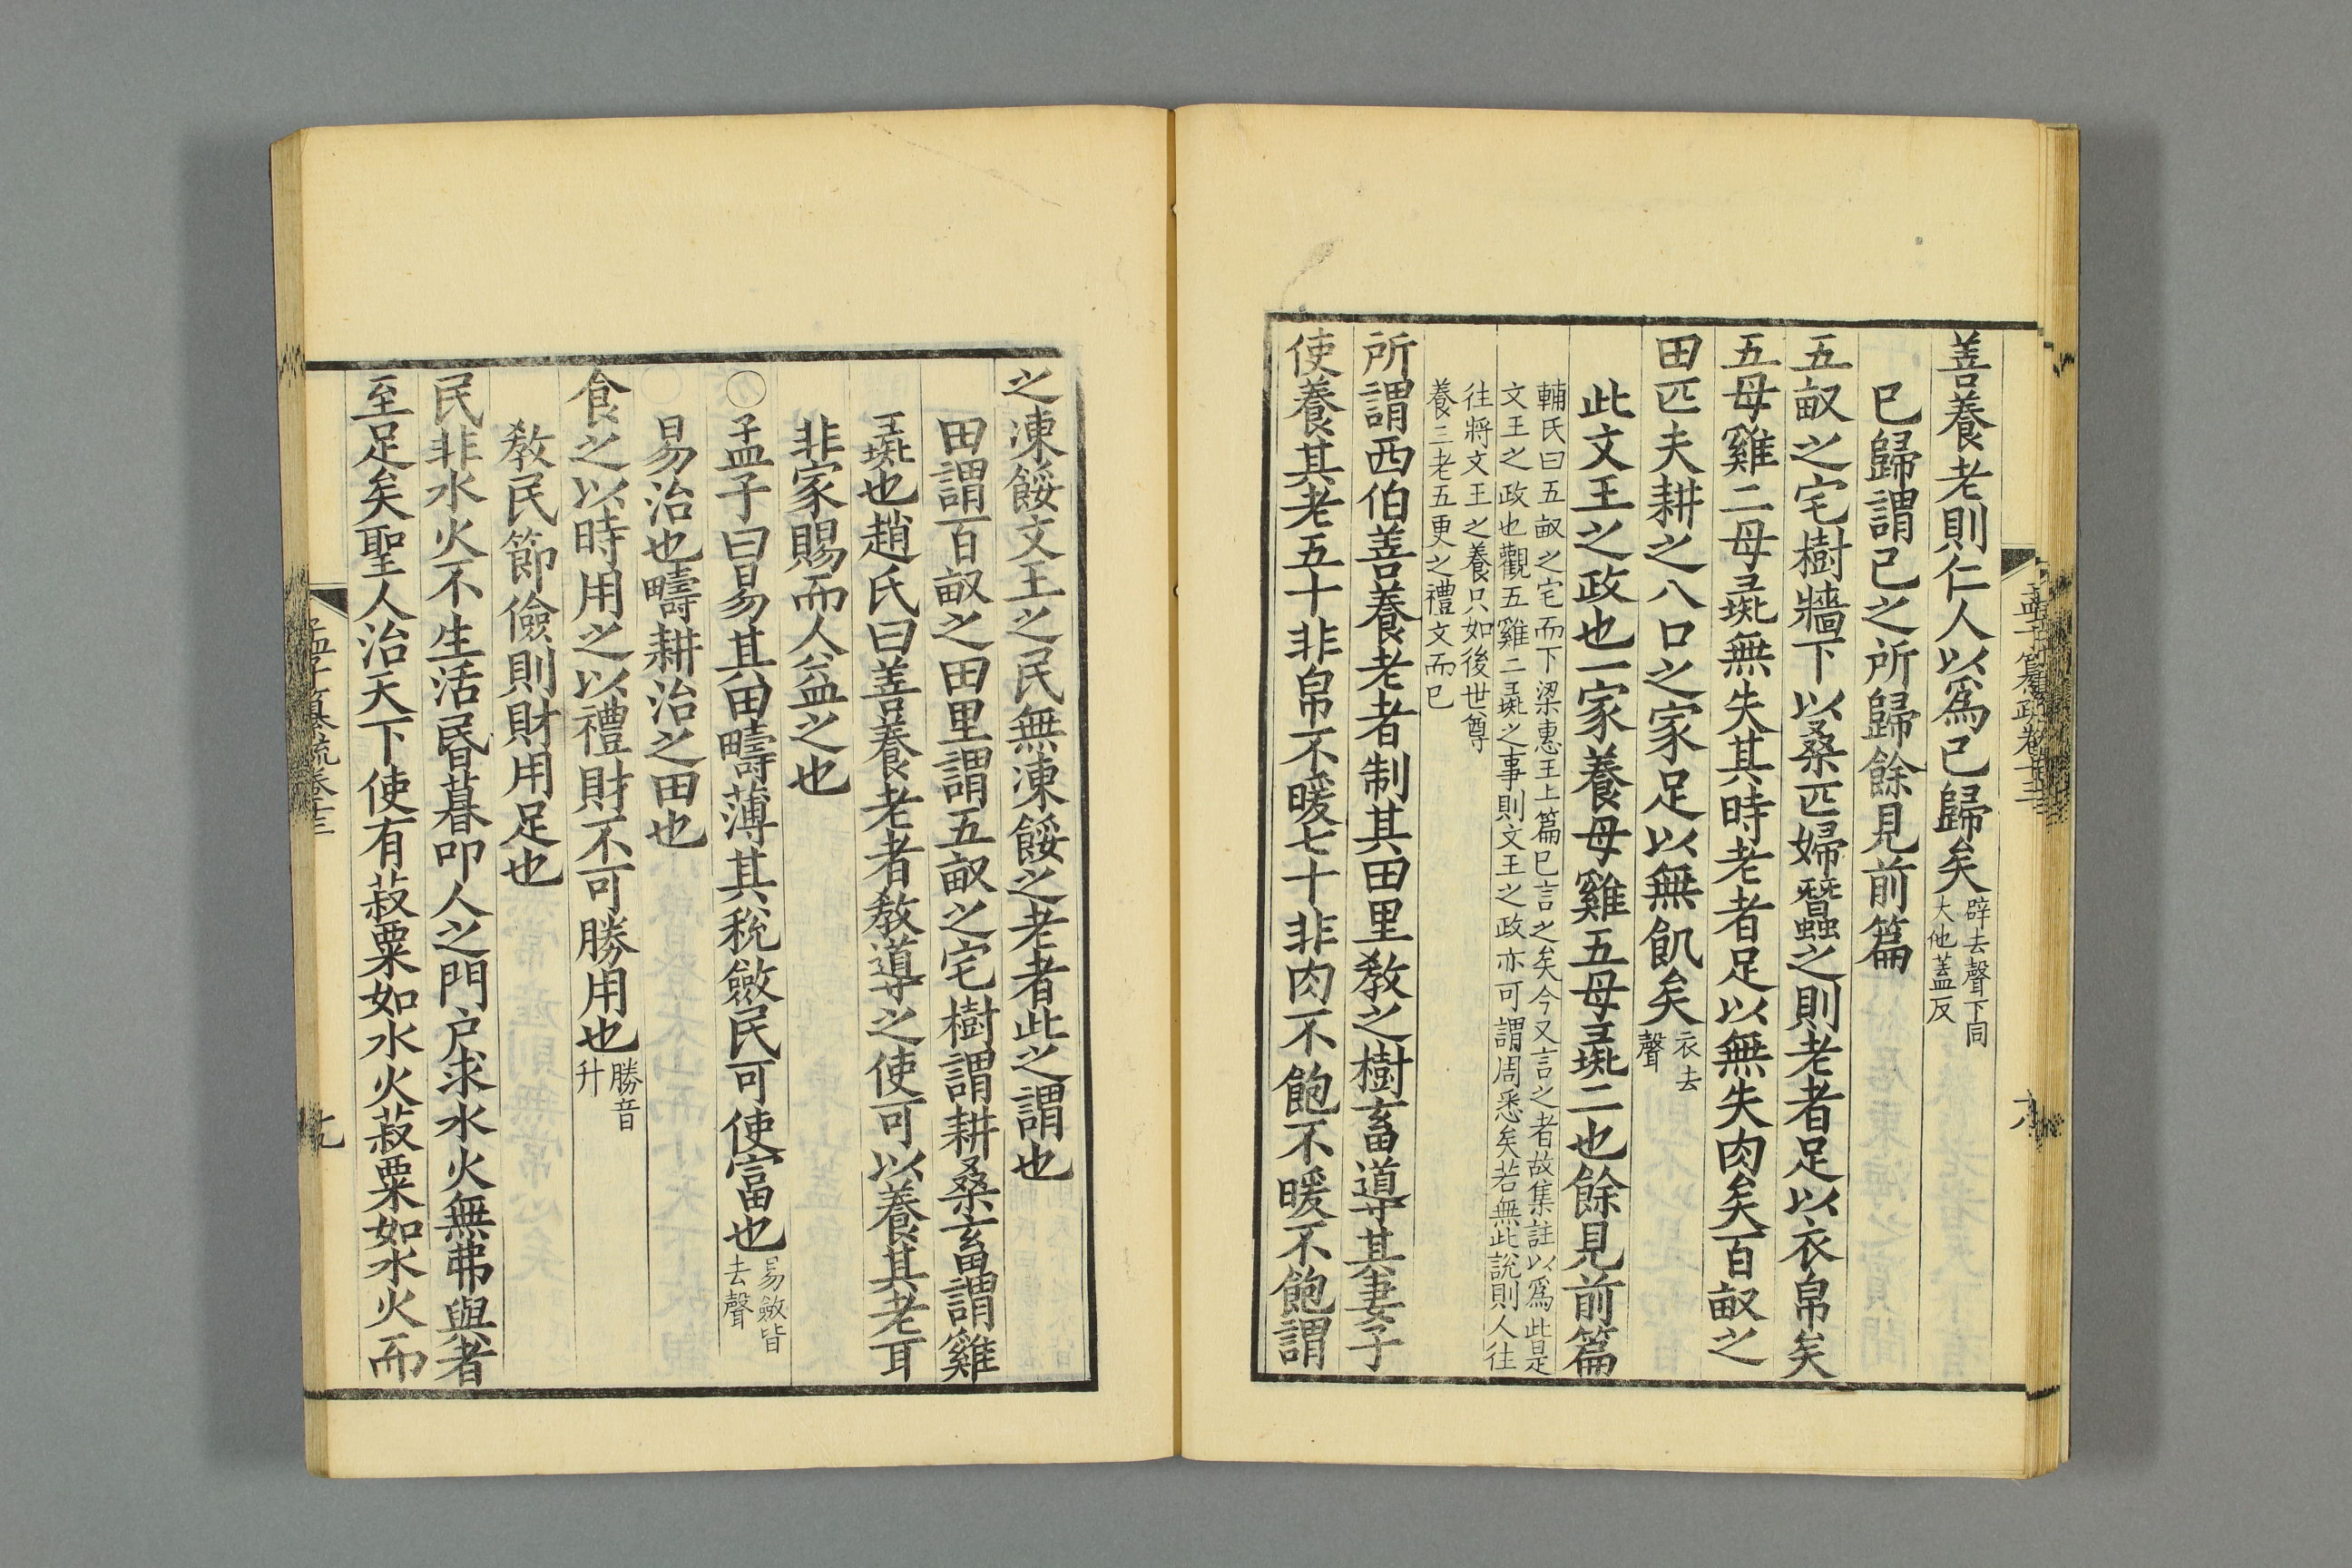 善養老則仁人以爲己歸矣辟去聲下同大他蓋反
已歸謂己之所歸餘見前篇
五畝之宅樹牆下以桑匹婦蠶之則老者足以衣帛矣
五母雞二母彘無失其時老者足以無失肉矣百畝之
田匹夫耕之八口之家足以無飢矣衣去聲
此文王之政也一家養母雞五母彘二也餘見前篇
輔氏曰五畝之宅而下梁惠王上篇已言之矣今又言之者故集註以爲此是
文王之政也觀五雞二彘之事則文王之政亦可謂周悉矣若無此說則人往
往將文王之養只如後世尊
養三老五更之禮文而已
所謂西伯善養老者制其田里教之樹畜導其妻子
使養其老五十非帛不暖七十非肉不飽不暖不飽謂
之凍餒文王之民無凍餒之老者此之謂也
田謂百畝之田里謂五畝之宅樹謂耕桑畜謂雞
彘也趙氏曰善養老者教導之使可以養其老耳
非家賜而人益之也
○孟子曰易其田疇薄其稅斂民可使富也易斂皆去聲
易治也疇耕治之田也
食之以時用之以禮財不可勝用也勝音升
教民節儉則財用足也
民非水火不生活昬暮叩人之門户求水火無弗與者
至足矣聖人治天下使有菽粟如水火菽粟如水火而
孟子纂疏卷十三
十九